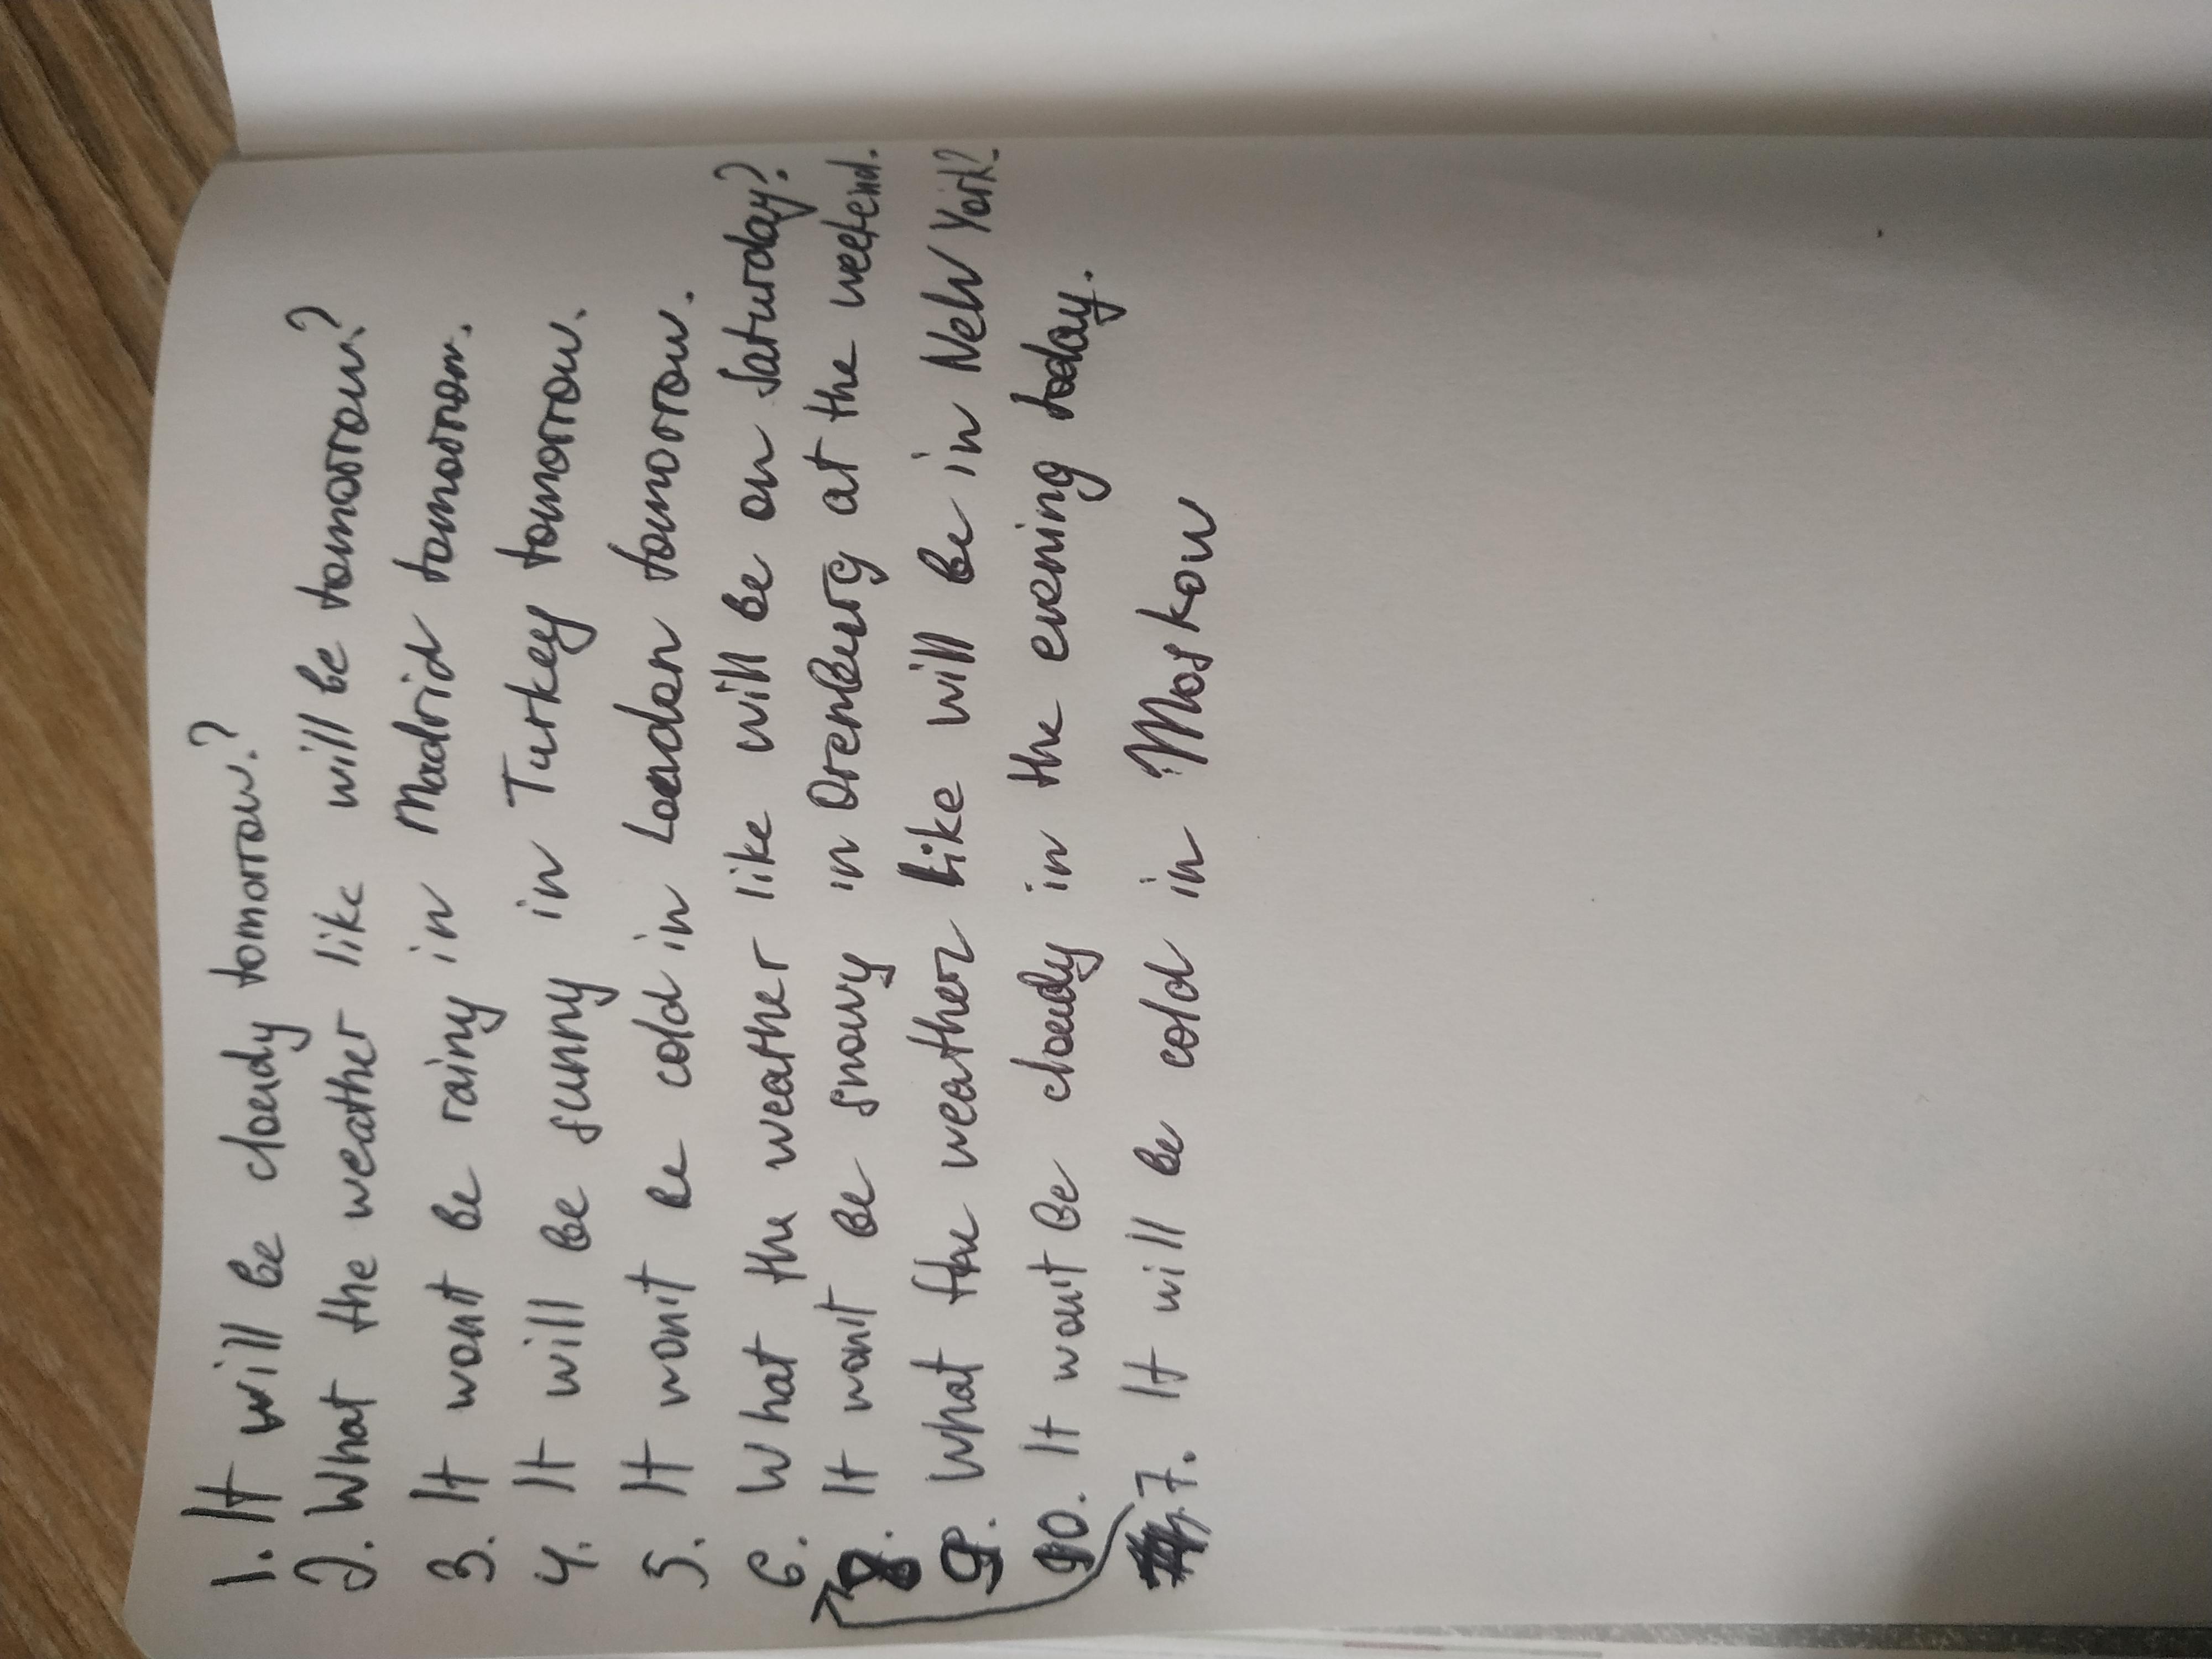 1. It will be cloudy tomorrow?
2. What the weather like will be tomorrow?
3. It won't be rainy in Madrid tomorrow.
4. It will be sunny in Turkey tomorrow.
5. It won't be cold in London tomorrow.
6. What the weather like will be on Saturday?
8. It won't be snowy in Orenburg at the weekend.
9. What the weather like will be in New York?
10. It won't be cloudy in the evening today.
7. It will be cold in Moskow